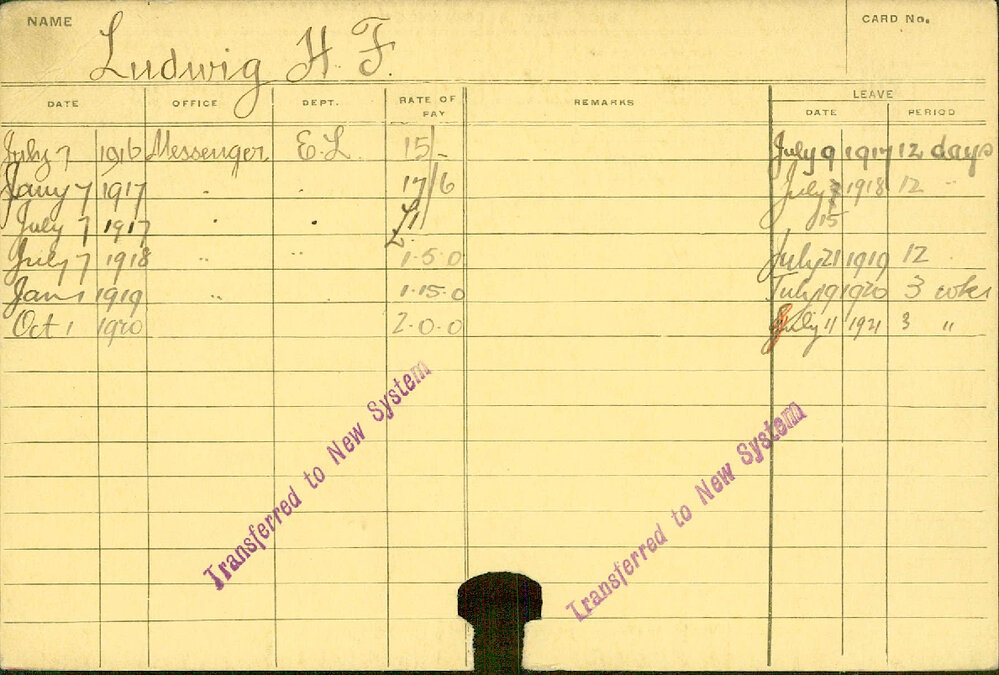 NAME Ludwig H. F. CARD No.
DATE OFFICE DEPT. RATE OF PAY REMARKS LEAVE
DATE PERIOD
July 7 1916 Messenger E.L. 15/- July 9 1917 12 days
Jany 7 1917 " 17/6 July 7 1918 12 "
15
July 7 1917 " " £1
July 7 1918 " " 1-5-0 July 21 1919 12
Jan 1 1919 " 1-15-0 July 19 1920 3 wks
Oct 1 1920 2-0-0 July 11 1921 3 "
Transferred to New System
Transferred to New System